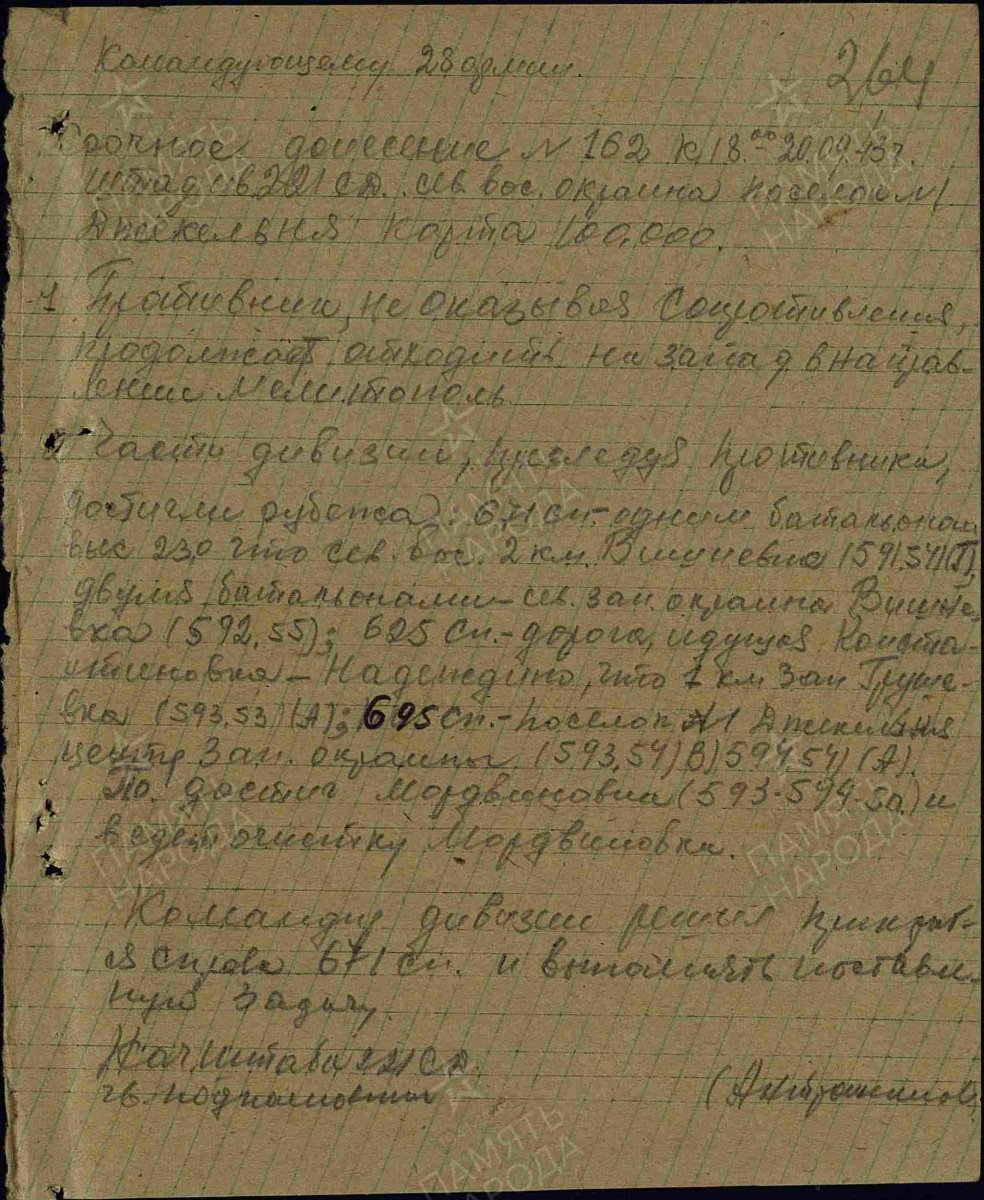 264
Командующему 28 армии.
Срочное донесение N 162 к 18.00 20.09.43 г.
штадив 221 СД. сев. вос. окраина поселок N1
Джекельня карта 100.000.
1 Противник, не оказывая сопротивления,
продолжает отходить на запад в направ-
лении Мелитополь
2 Части дивизии, преследуя противника,
достигли рубежа: 671 сп.- одним батальоном
выс 23,0 что сев. вос. 2 км. Вишневка (591.54)(Г),
двумя батальонами - св. зап. окраина Вишне-
вка (592.55); 625 сп.- дорога, идущая Конста-
нтиновка - Надеждино, что 1 км зап Груше-
вка (593.53 (А); 695 сп.- поселок N1 Джекельня
центр зап. окраины (593,54)В)594.54) (А).
По. достиг Мордвиновка (593-594-5а) и
ведет очистку Мордвиновка.
Командир дивизии решил прикрыв-
ся справа 671 сп. и выполнять поставле-
ную задачу.
Нач. штаба 221 СД.
гв. подполковник
ПАМЯТЬ
НАРОДА